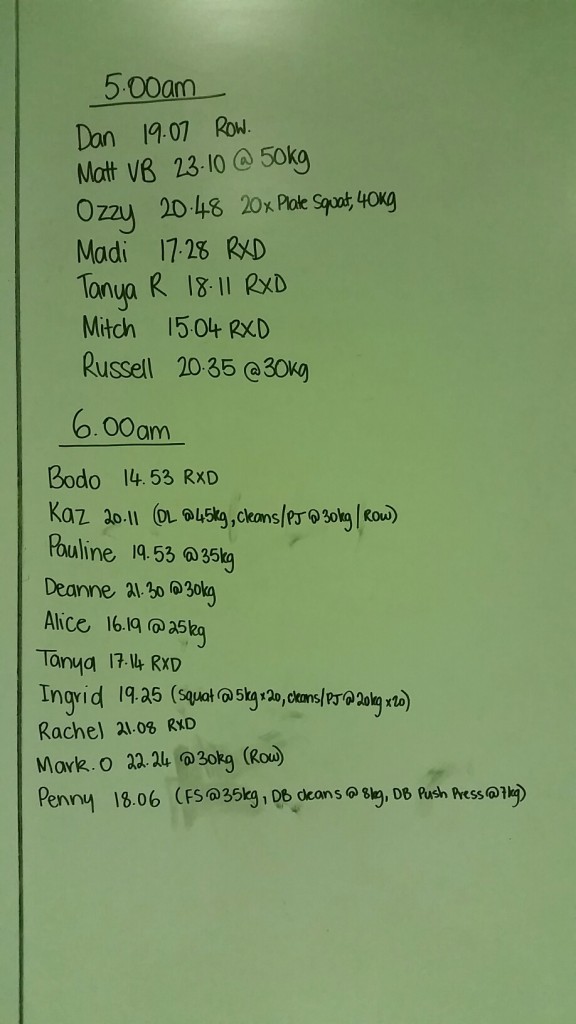 5.00am
Dan 19.07 Row.
Matt VB 23.10 @ 50kg
Ozzy 20.48 20x Plate Squat, 40kg
Madi 17.28 RXD
Tanya R 18.11 RXD
Mitch 15.04 RXD
Russell 20.35 @30kg
6.00am
Bodo 14.53 RXD
Kaz 20.11 (DL @45kg, cleans/PJ@30kg/Row)
Pauline 19.53 @35kg
Deanne 21.30 @30kg
Alice 16.19 @25kg
Tanya 17.14 RXD
Ingrid 19.25 (Squat@5kgx20, cleans/PJ@20kgx20)
Rachel 21.08 RXD
Mark.O 22.24 @30kg (Row)
Penny 18.06 (FS@35kg, DB cleans @ 8kg, DB Push Press@7kg)